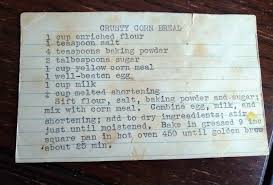 CRUSTY CORN BREAD
1 cup enriched flour
1 teaspoon salt
4 teaspoons baking powder
2 talbespoons sugar
1 cup yellow corn meal
1 well-beaten egg
1 cup milk
cup melted shortening
Sift flour, salt, baking powder and sugar;
mix with corn meal. Combine egg, milk, and
shortening; add to dry ingredients; stir
just until moistened. Bake in greased 9 inc
square pan in hot oven 450 until golden brow
about 25 min.